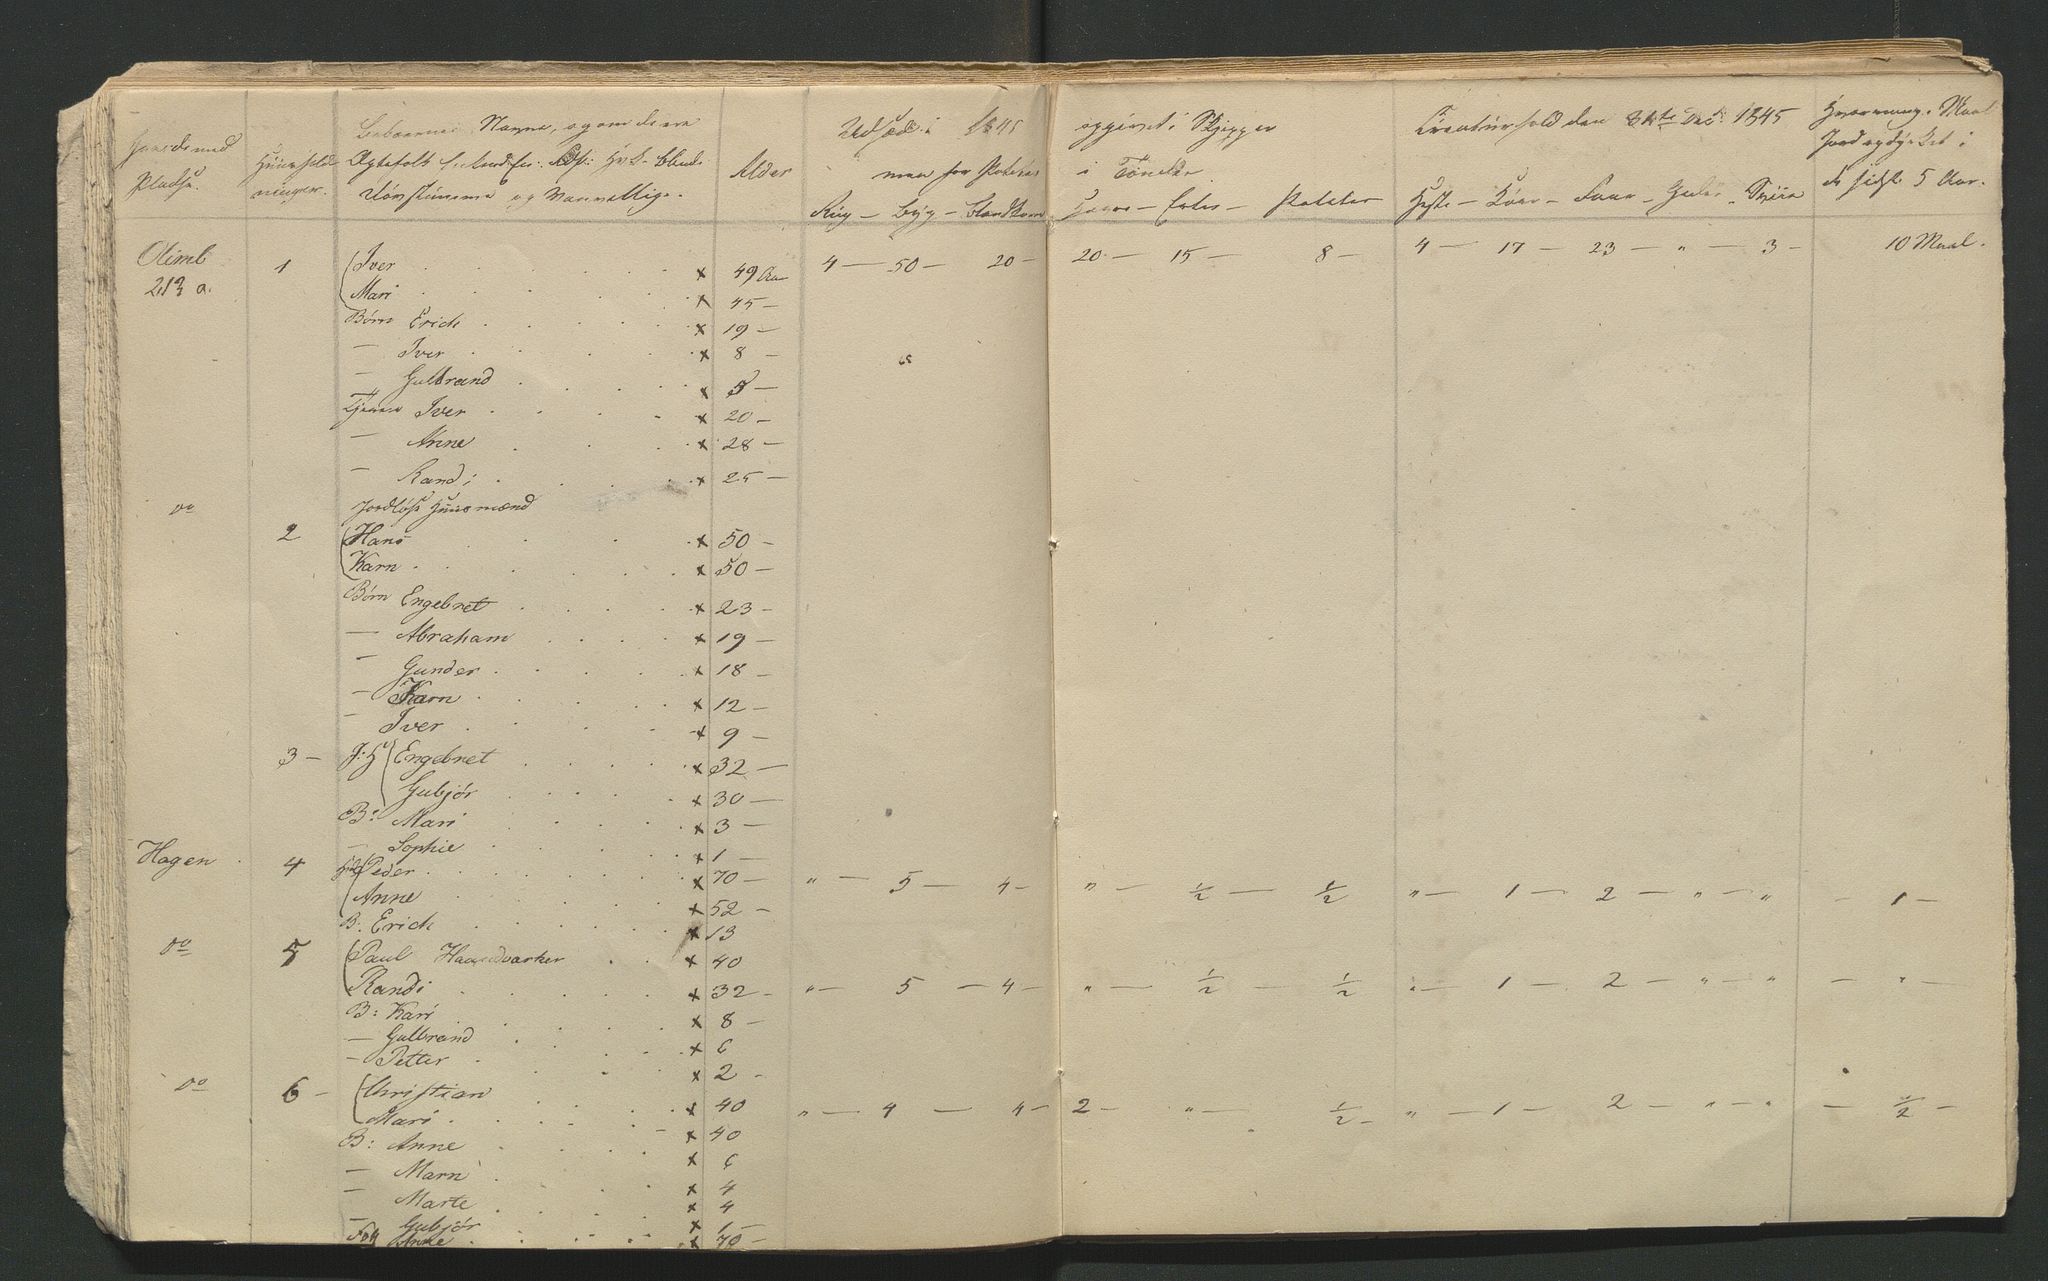 Gaarde med Pladse.
Huusholdninger.
Beboernes Navne, og om de ere
Ægtefolk
og Vanvittige.
Alder
Udsæd i 1845 opgivet i Skjepper
men for Poteter i Tønder
Rug – Byg – Blandkorn Havre – Erter – Poteter
Creaturhold den 31te Decr 1845
Heste – Køer – Faar – Geder – Sviin
Hvormange Maal
Jord opdyrket i
de sidste 5 Aar.
Olimb 1 Iver x 49 Aar 4 — 50 — 20 — 20 — 15 — 8 — 4 — 17 — 23 — „ — 3 — 10 Maal.
213 a. Mari x 45 —
Børn Erich x 19 —
— Iver x 8 —
— Gulbrand x 5 —
Tjenere Iver x 20 —
— Anne x 28 —
— Randi x 25 —
do Jordløse Huusmænd
2 Hans x 50 —
Karn x 50 —
Børn Engebret x 23 —
— Abraham x 19 —
— Gunder x 18 —
— Karn x 12 —
— Iver x 9 —
3 — J: H Engebret x 32 —
Gubjør x 30 —
B: Mari x 3 —
— Sophie x 1 —
Hagen 4 Peder x 70 — „ — 5 — 4 — „ — ½ — ½ „ — 1 — 2 — „ — „ — 1 —
Anne x 52 —
B. Erich x 13
do 5 Paul Haandværker x 40
Randi x 32 — „ — 5 — 4 — „ — ½ — ½ „ — 1 — 2 — „ — „ — „ —
B: Kari x 8 —
— Gulbrand x 6
— Petter x 2 —
do 6 — Christian x 40 „ — 4 — 4 — 2 — „ — ½ — „ — 1 — 2 — „ — „ — ½ —
Mari x 40
B: Anne x 6
— Marn x 4
— Marte x 4
— Gubjør x 1 —
Anne x 70 —